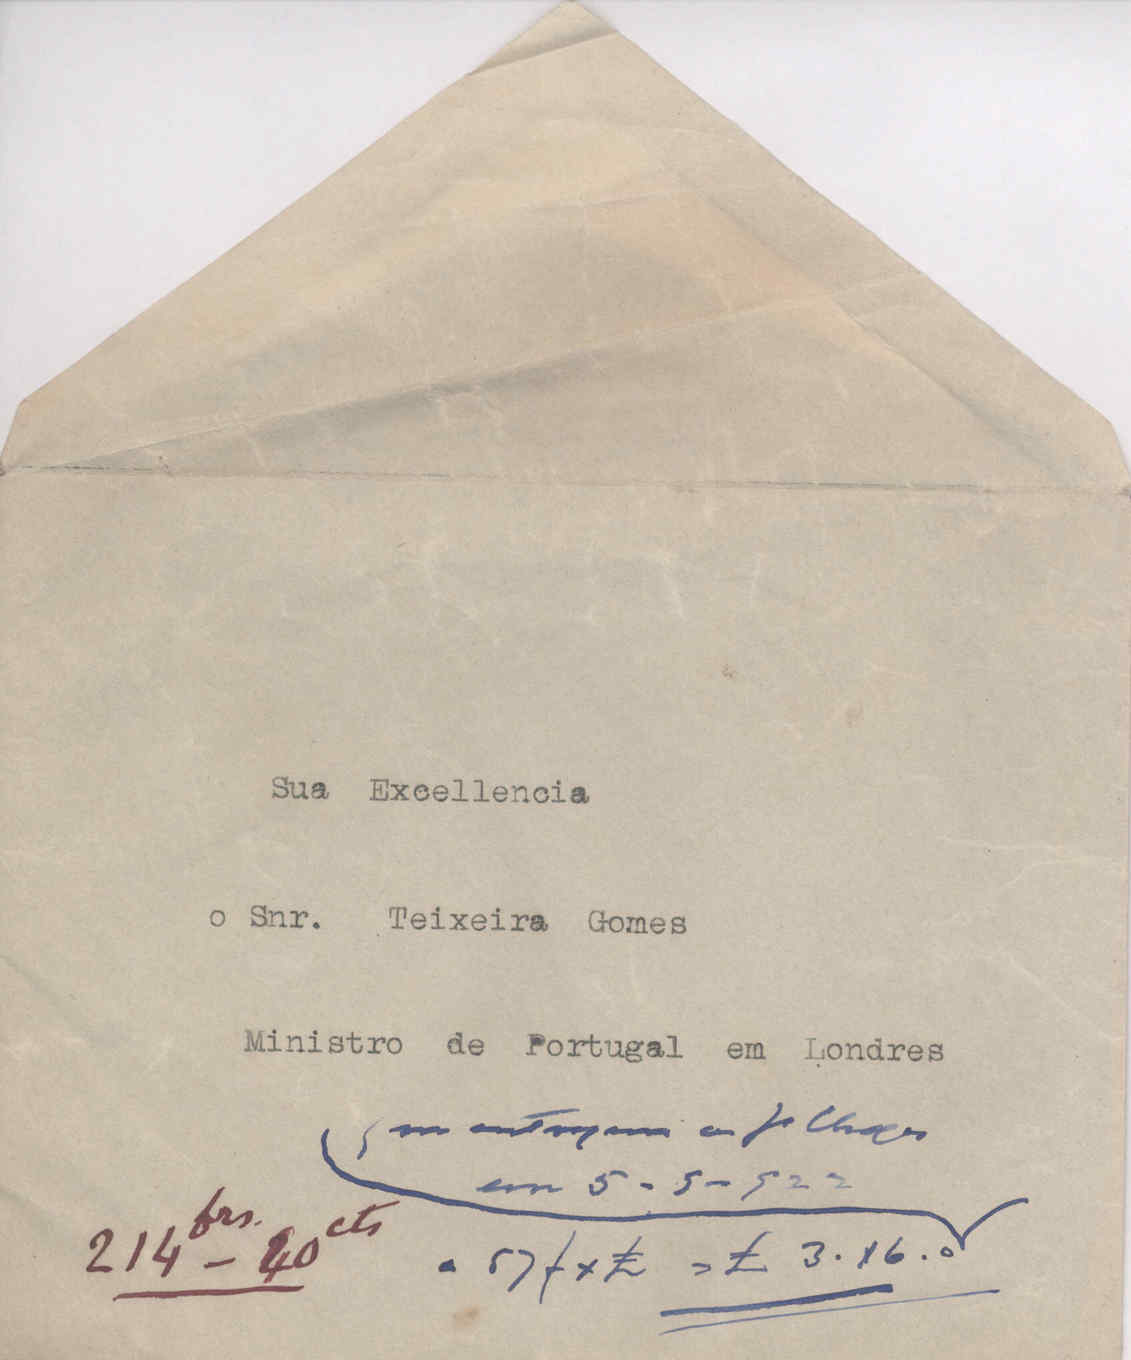 Sua Excellencia
o Snr. Teixeira Gomes
Ministro de Portugal em Londres
em 5-5-922
214 frs. - 40 cts
a 57 f x £ = £ 3.16.0